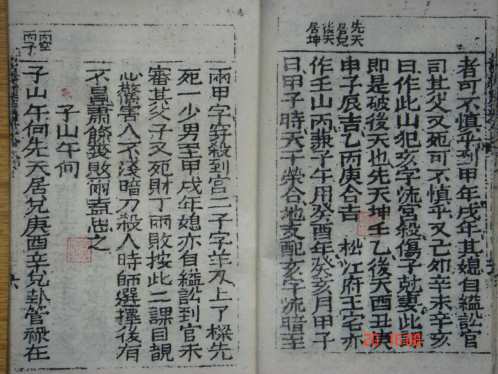 先天
居兌
後天
居坤
者可不慎乎到甲年戌年其媳自縊訟官
司其父又死可不慎乎又己如辛未辛亥
曰作此山犯亥字流官殺傷子就事此
即是破後天也先天坤壬乙後天酉丑庚
申子辰吉乙丙庚合吉 松江府王宅亦
作壬山丙兼子午用癸酉年癸亥月甲子
日甲子時天干榮合地支配亥字流暗至
兩甲字穿殺到宮二子字羊刃上了樑先
死一少男至甲戌年媳亦自縊訟到官未
審其父子又死財丁兩敗按此二課目覩
心驚害人不淺暗刀殺人時師選擇後有
不
子山午向
子山午向先天居兌庚酉辛兌卦管祿在